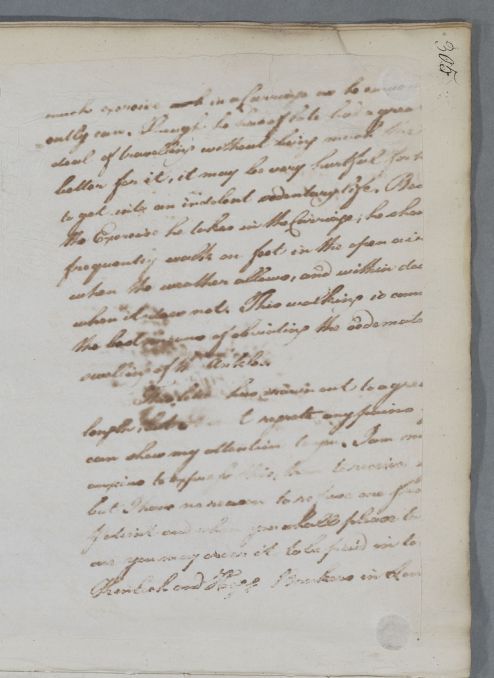 305
much exercise in a Carriage as he
ently can. Though he has of late had a grea
deal of travelling without being much the
better for it, it may be very hurtful for h
to get into an indolent sedentary life. Bes
the Exercise he takes in the Carriage, he shou
frequently walk on foot in the open air
when the weather allows, and within doo
when it does not. This walking is comm
the best means of obviating the oedemato
swelling of the Ankles.
This has run out to a grea
length, but I regrete any pains
can shew my attention to you. I am
to to receive
but I have no reason to refuse one
I think and when you shall please to
one you may order it to be paid in to
and Bankers in